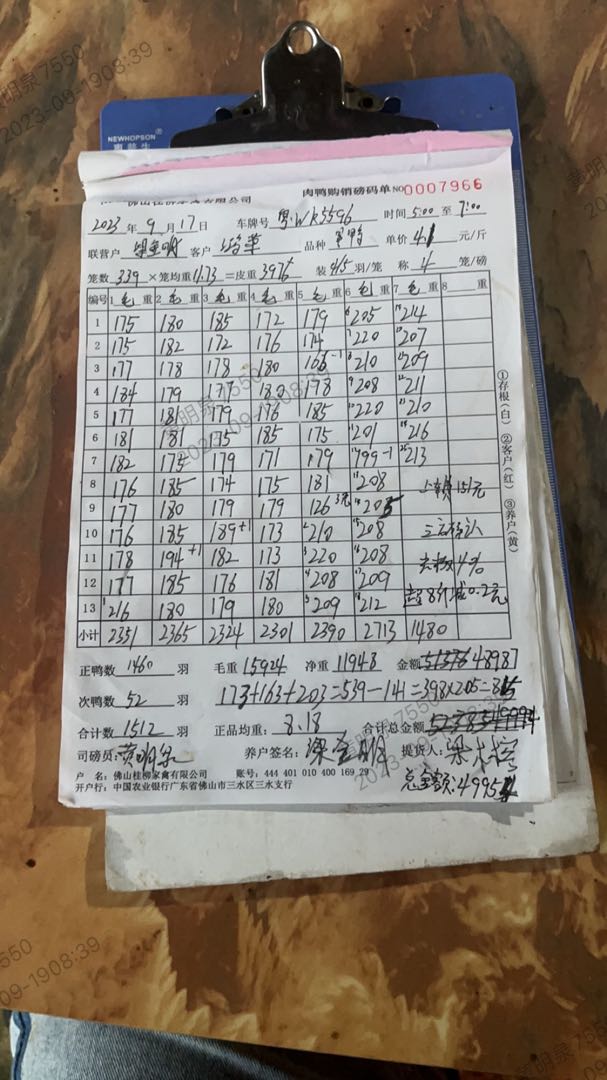 NEWHOPSON
惠普生
佛山桂柳家禽有限公司
肉鸭购销磅码单 NO 0007966
2023 年 9 月 17 日 车牌号 粤·WK5596 时间 5:00 至 7:00
联营户 客户 品种 单价 4.1 元/斤
笼数 339 ×笼均重 =皮重 3976 装 4.5 羽/笼 称 4 笼/磅
编号 1 毛 重 2 毛 重 3 毛 重 4 毛 重 5 毛 重 6 毛 重 7 毛 重 8 重
1 175 180 185 172 179 205 214
2 175 182 172 176 174 220 207
3 177 178 178 180 210 209
4 184 179 177 180 178 208 211
5 177 181 179 176 185 220 210
6 181 181 175 185 175 201 216
7 182 175 179 171 179 199-1 213
8 176 185 174 175 181 208 上车费 151元
9 177 180 179 179 126 205
10 176 185 189+1 173 210 208 三方确认
11 178 194+1 182 173 220 208 去极 4%
12 177 185 176 181 208 209 超8斤减0.2元
13 216 180 179 180 209 212
小计 2351 2365 2324 2301 2390 2713 1480
正鸭数 1460 羽 毛重 15924 净重 11948 金额 48987
次鸭数 52 羽 173+163+203=539-141=398×2.05=815
合计数 1512 羽 正品均重: 8.18 合计总金额
司磅员: 黄明泉 养户签名: 梁金明 提货人:
总金额: 4995
户 名: 佛山桂柳家禽有限公司 账号: 444 401 010 400 169 29
开户行: 中国农业银行广东省佛山市三水区三水支行
①存根(白) ②客户(红) ③养户(黄)
黄明泉 7550
2023-09-19 08:39